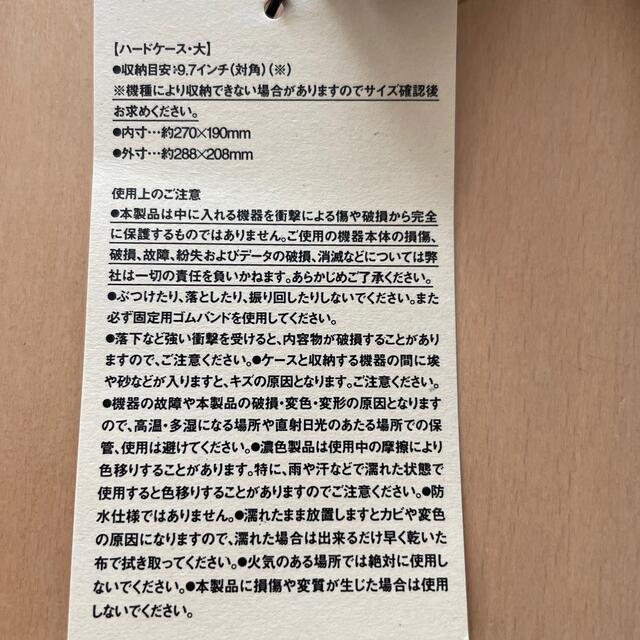 【ハードケース・大】
●収納目安:9.7インチ(対角)(※)
※機種により収納できない場合がありますのでサイズ確認後
お求めください。
●内寸…約270×190mm
●外寸…約288×208mm
使用上のご注意
●本製品は中に入れる機器を衝撃による傷や破損から完全
に保護するものではありません。ご使用の機器本体の損傷、
破損、故障、紛失およびデータの破損、消滅などについては弊
社は一切の責任を負いかねます。あらかじめご了承ください。
●ぶつけたり、落としたり、振り回したりしないでください。また
必ず固定用ゴムバンドを使用してください。
●落下など強い衝撃を受けると、内容物が破損することがあり
ますので、ご注意ください。●ケースと収納する機器の間に埃
や砂などが入りますと、キズの原因となります。ご注意ください。
●機器の故障や本製品の破損・変色・変形の原因となります
ので、高温・多湿になる場所や直射日光のあたる場所での保
管、使用は避けてください。●濃色製品は使用中の摩擦により
色移りすることがあります。特に、雨や汗などで濡れた状態で
使用すると色移りすることがありますのでご注意ください。●防
水仕様ではありません。●濡れたまま放置しますとカビや変色
の原因になりますので、濡れた場合は出来るだけ早く乾いた
布で拭き取ってください。●火気のある場所では絶対に使用し
ないでください。●本製品に損傷や変質が生じた場合は使用
しないでください。